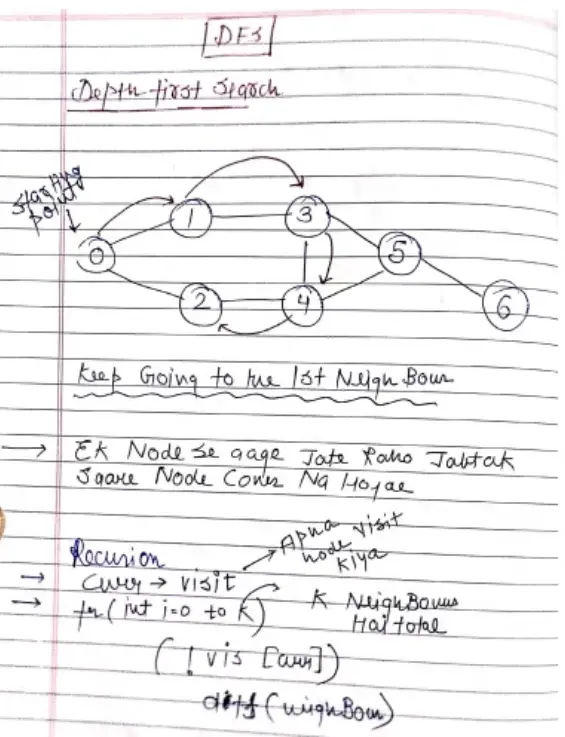 DFS
Depth-first Search
Starting
point
1
3
0
5
2
4
6
Keep Going to the 1st NeighBour
→ Ek Node se aage Jate Raho Jabtak
Saare Node Cover Na Hojae
Recursion
→ curr → visit
Apna
node visit
kiya
→ for (int i=0 to k)
K NeighBours
Hai total
(! vis [curr])
dfs (neighBour)